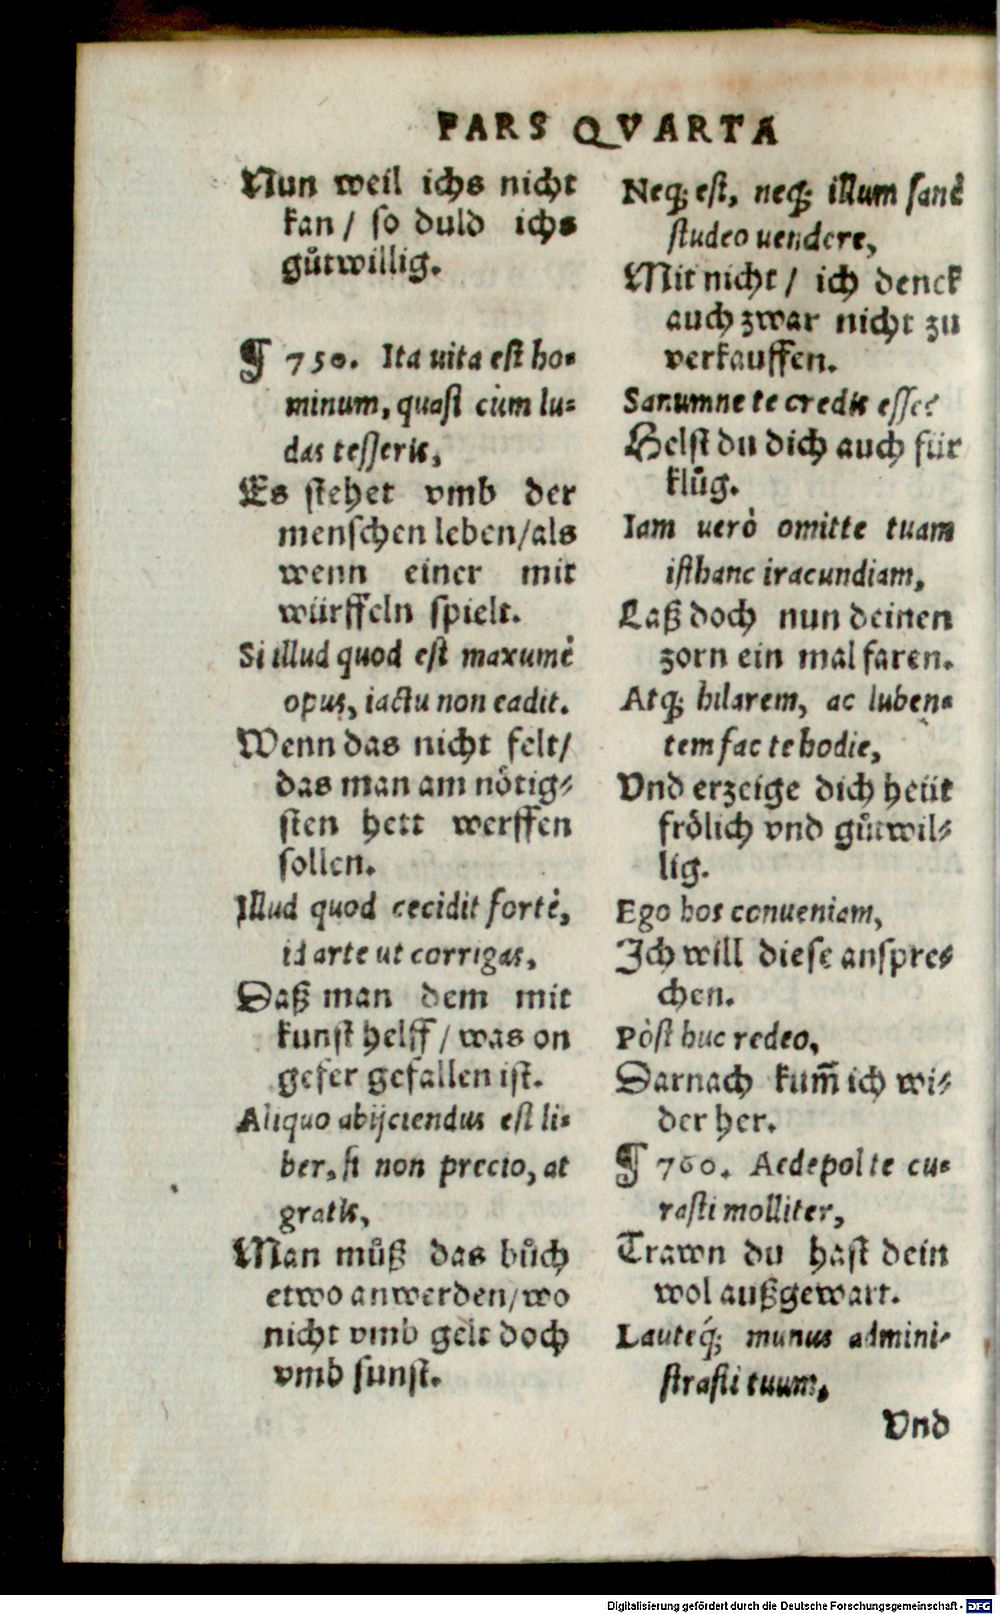 PARS QVARTA
Nun weil ichs nicht
kan / so duld ichs
gůtwillig.
¶ 750. Ita uita est ho⸗
minum, quasi cùm lu⸗
das tesseris,
Es stehet vmb der
menschen leben/als
wenn einer mit
würffeln spielt.
Si illud quod est maxumè
opus, iactu non cadit.
Wenn das nicht felt/
das man am nötig⸗
sten hett werffen
sollen.
Illud quod cecidit fortè,
id arte ut corrigas,
Daß man dem mit
kunst helff / was on
gefer gefallen ist.
Aliquo abijciendus est li⸗
ber, si non precio, at
gratis,
Man můß das bůch
etwo anwerden/wo
nicht vmb gelt doch
vmb sunst.
Neq; est, neq; illum sanè
studeo uendere,
Mit nicht / ich denck
auch zwar nicht zu
verkauffen.
Sanumne te credis esse?
Helst du dich auch für
klůg.
Iam uerò omitte tuam
isthanc iracundiam,
Laß doch nun deinen
zorn ein mal faren.
Atq; hilarem, ac luben⸗
tem fac te hodie,
Vnd erzeige dich heüt
frölich vnd gůtwil⸗
lig.
Ego hos conueniam,
Ich will diese anspre⸗
chen.
Pòst huc redeo,
Darnach kum̃ ich wi⸗
der her.
¶ 760. Aedepol te cu⸗
rasti molliter,
Trawn du hast dein
wol außgewart.
Lauteq́; munus admini⸗
strasti tuum,
Vnd
Digitalisierung gefördert durch die Deutsche Forschungsgemeinschaft - DFG